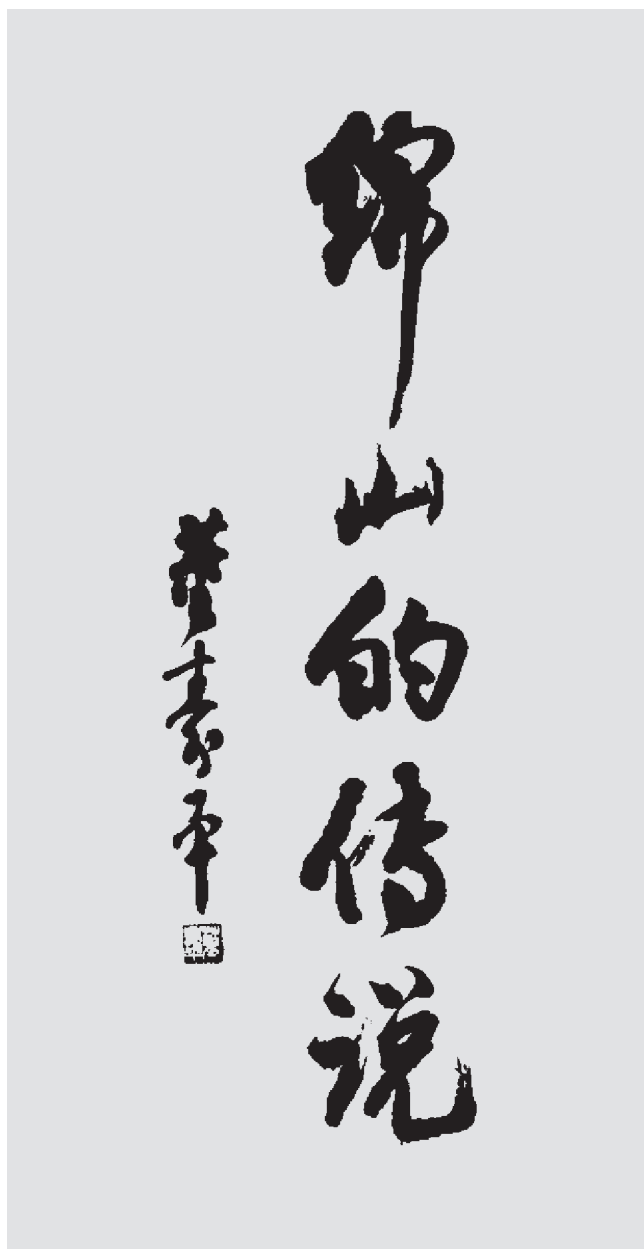 绵山的传说
董寿平